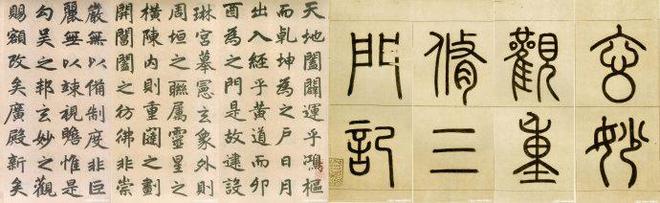 玄妙
觀重
脩三
門記
天地闔闢運乎鴻樞
而乾坤為之戶日月
出入經乎黃道而卯
酉為之門是故建設
琳宮摹憲玄象外則
周垣之聯属靈星之
橫陳内則重闥之劃
開閶闔之彷彿非崇
嚴無以備制度非巨
麗無以竦視瞻惟是
勾吳之邦玄妙之觀
賜額改矣廣殿新矣